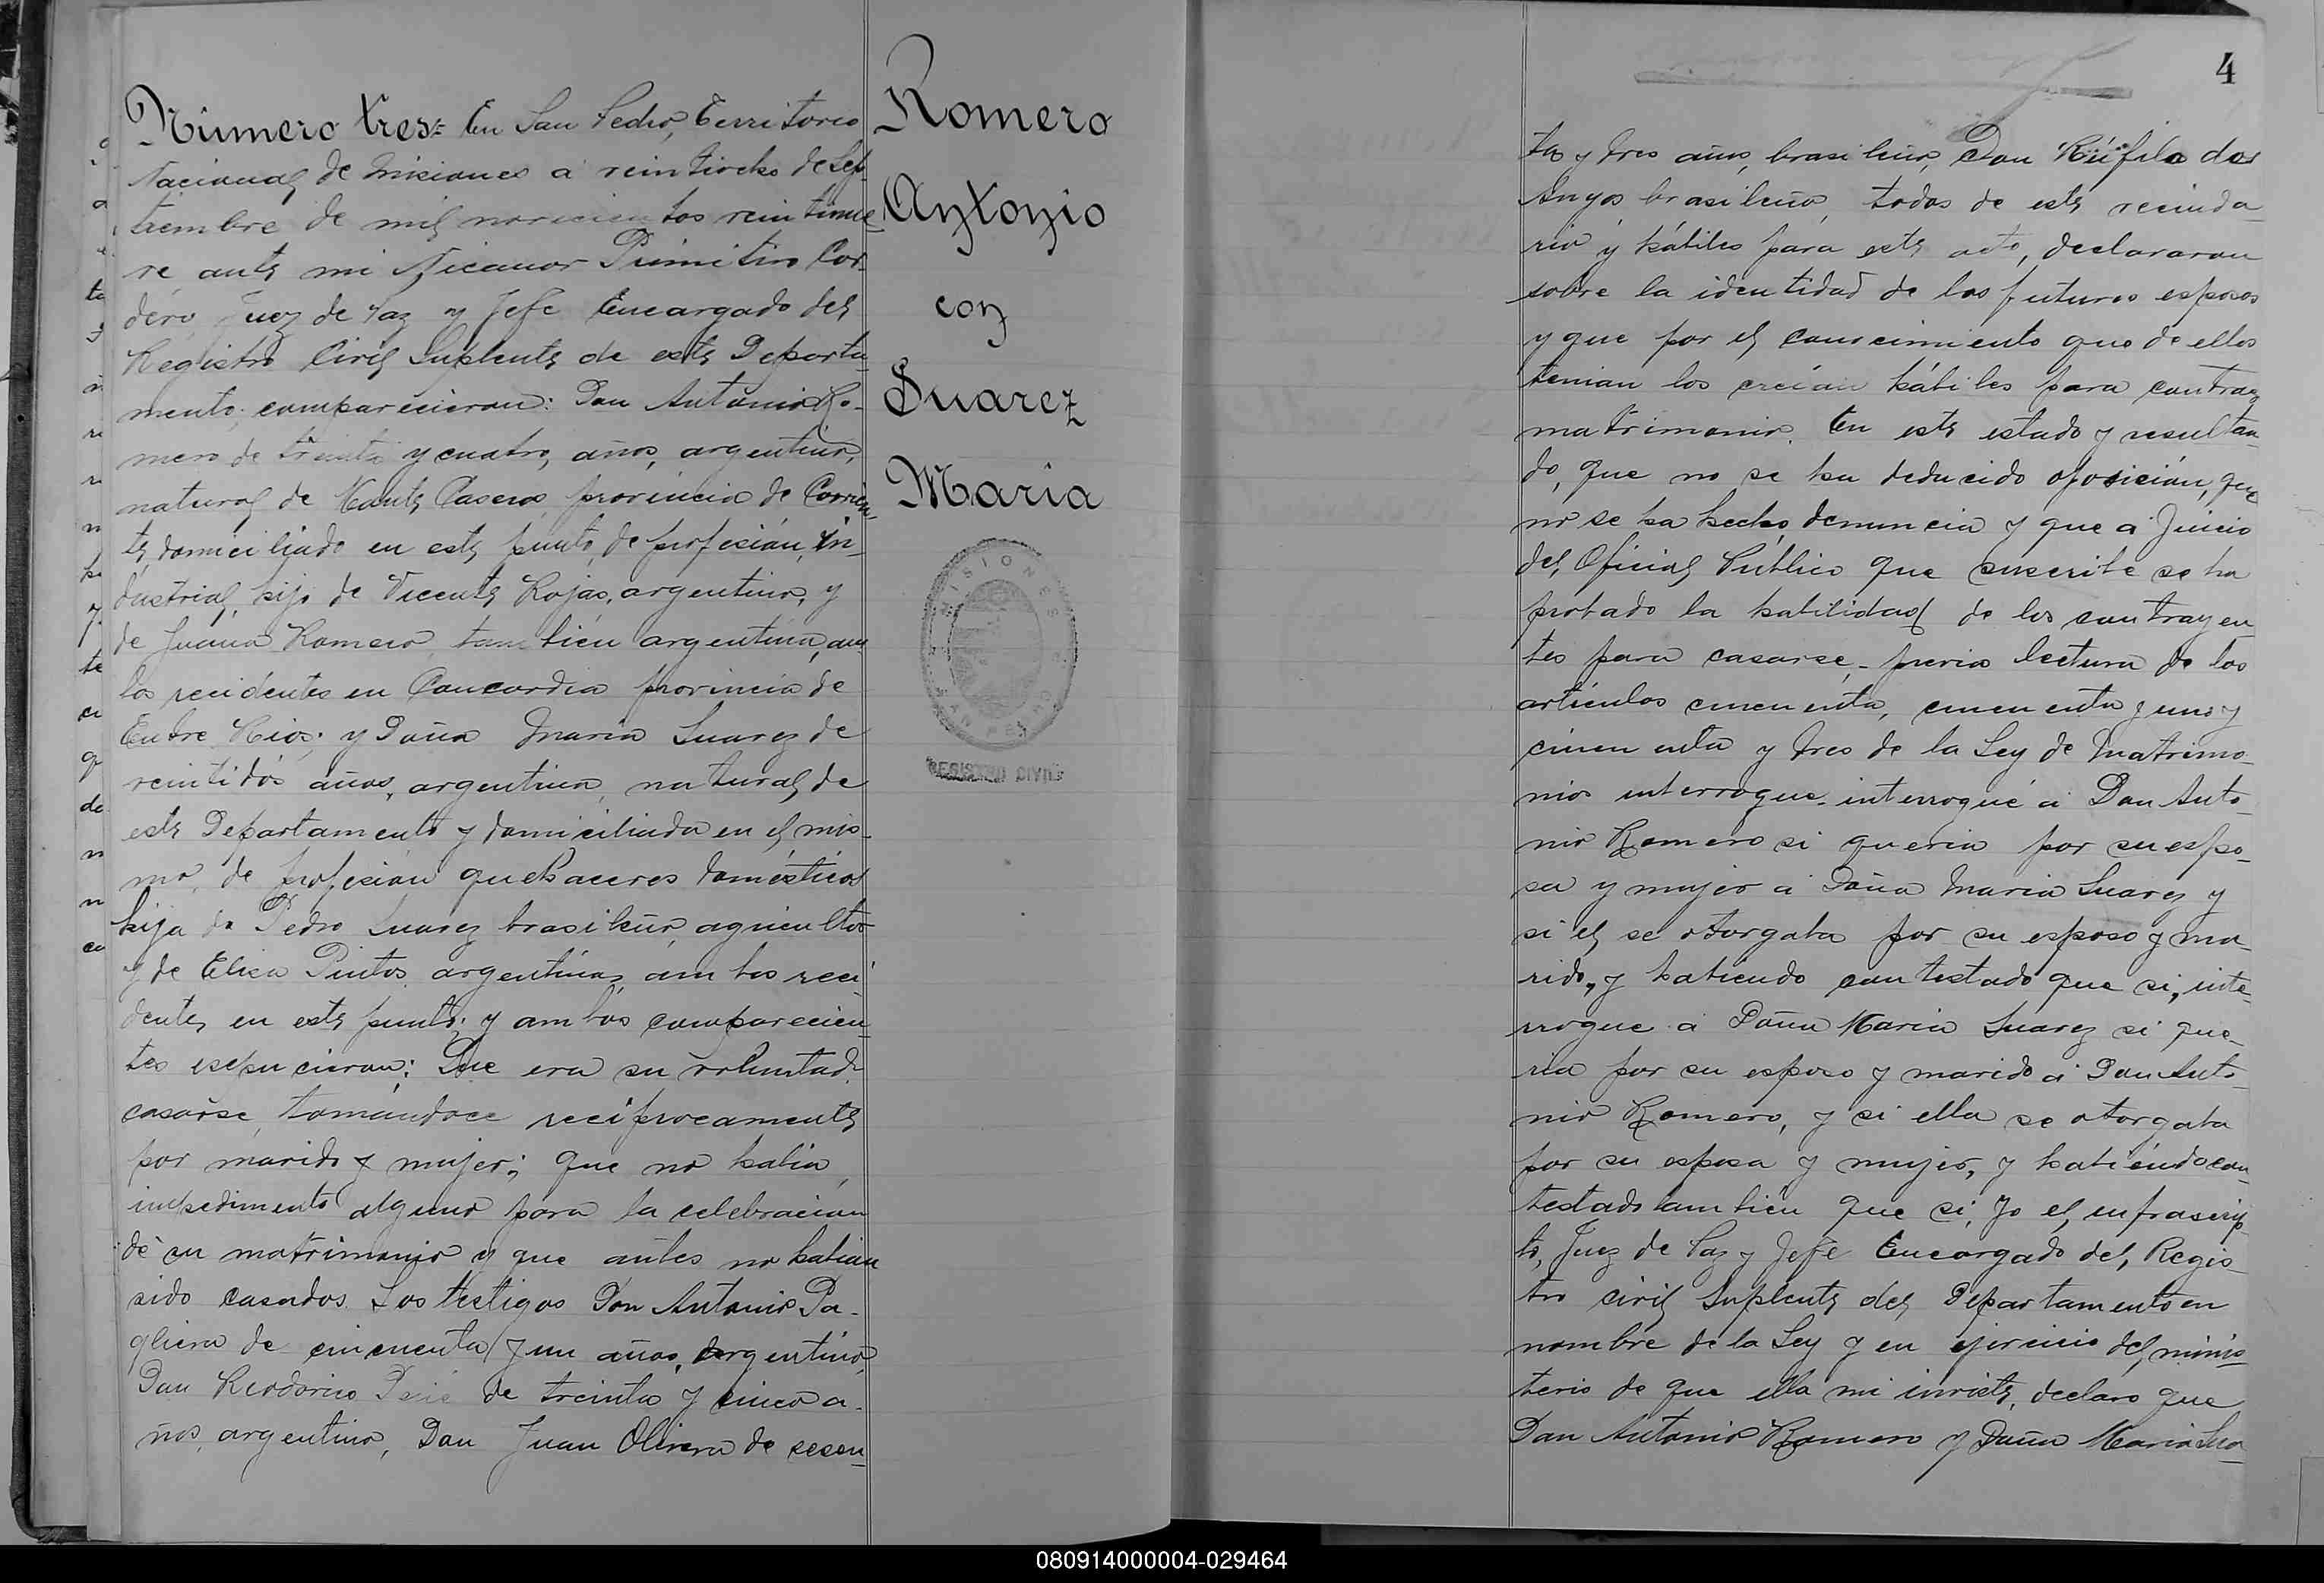 Número tres: En San Pedro, Territorio
Nacional de Misiones a veintiocho de Sep-
tiembre de mil novecientos veintinue
ve ante mi Nicanor Primitivo Cor-
dero Juez de Paz y Jefe Encargado del
Registro Civil Suplente de este Departa
mento, comparecieron: Don Antonio Ro-
mero de treinta y cuatro, años, argentino,
natural de Monte Caseros, provincia de Corrien-
te, domiciliado en este punto, de profesión, in-
dustrial, hijo de Vicente Rojas, argentino, y
de Juana Romero, tambien argentina, am
los recidentes en Concordia provincia de
Entre Rios; y Doña Maria Suarez de
veintidós años, argentina, natural de
este Departamento y domiciliada en el mis-
mo, de profesión quehaceres domésticos
hija de Pedro Suarez brasileño, agricultor
y de Elisa Pintos, argentina, ambos reci
dente, en este punto; y ambos comparecien
tes expucieron: Que era su voluntad
casarse, tomándoce reciprocamente
por marido y mujer; que no habia
impedimento alguno para la celebracion
de su matrimonio y que antes no habian
sido casados. Los testigos Don Antonio Pa-
gliera de cincuenta y un años, argentino,
Don de treinta y cinco a-
ños, argentino, Don Juan Olivera de sesen-
Romero
Antonio
con
Suarez
Maria
MISIONES
SAN PEDRO
REGISTRO CIVIL
4
ta y tres años, brasileño, Don Rúfilo dos
Anyos brasileño, todos de este vecinda-
rio y hábiles para este acto, declararon
sobre la identidad de los futuros esposos
y que por el conocimiento que de ellos
tenian los creían hábiles para contraer
matrimonio. En este estado y resultan
do, que no se ha deducido oposición, que
no se ha hecho, denuncia y que a Juicio
del Oficial Público que suscribe se ha
probado la habilidad de los contrayen
tes para casarse,- previa lectura de los
artículos cincuenta, cincuenta y uno y
cincuenta y tres de la Ley de Matrimo-
nios interrogue. interrogué a Don Anto-
nio Romero si queria por su espo-
sa y mujer a Doña Maria Suarez y
si el se otorgaba por su esposo y ma-
rido, y habiendo contestado que si, inte-
rrogue a Doña Maria Suarez si que-
ria por su esposo y marido a Don Anto-
nio Romero, y si ella se otorgaba
por su esposa y mujer, y habiéndo con-
testado tambien que si, Yo el, infrascrip-
to, Juez de Paz y Jefe Encargado del, Regis-
tro civil Suplente del Departamento en
nombre de la Ley y en ejercicio del minis-
terio de que ella mi inviste, declaro que
Don Antonio Romero y Doña Maria Sua
080914000004-029464